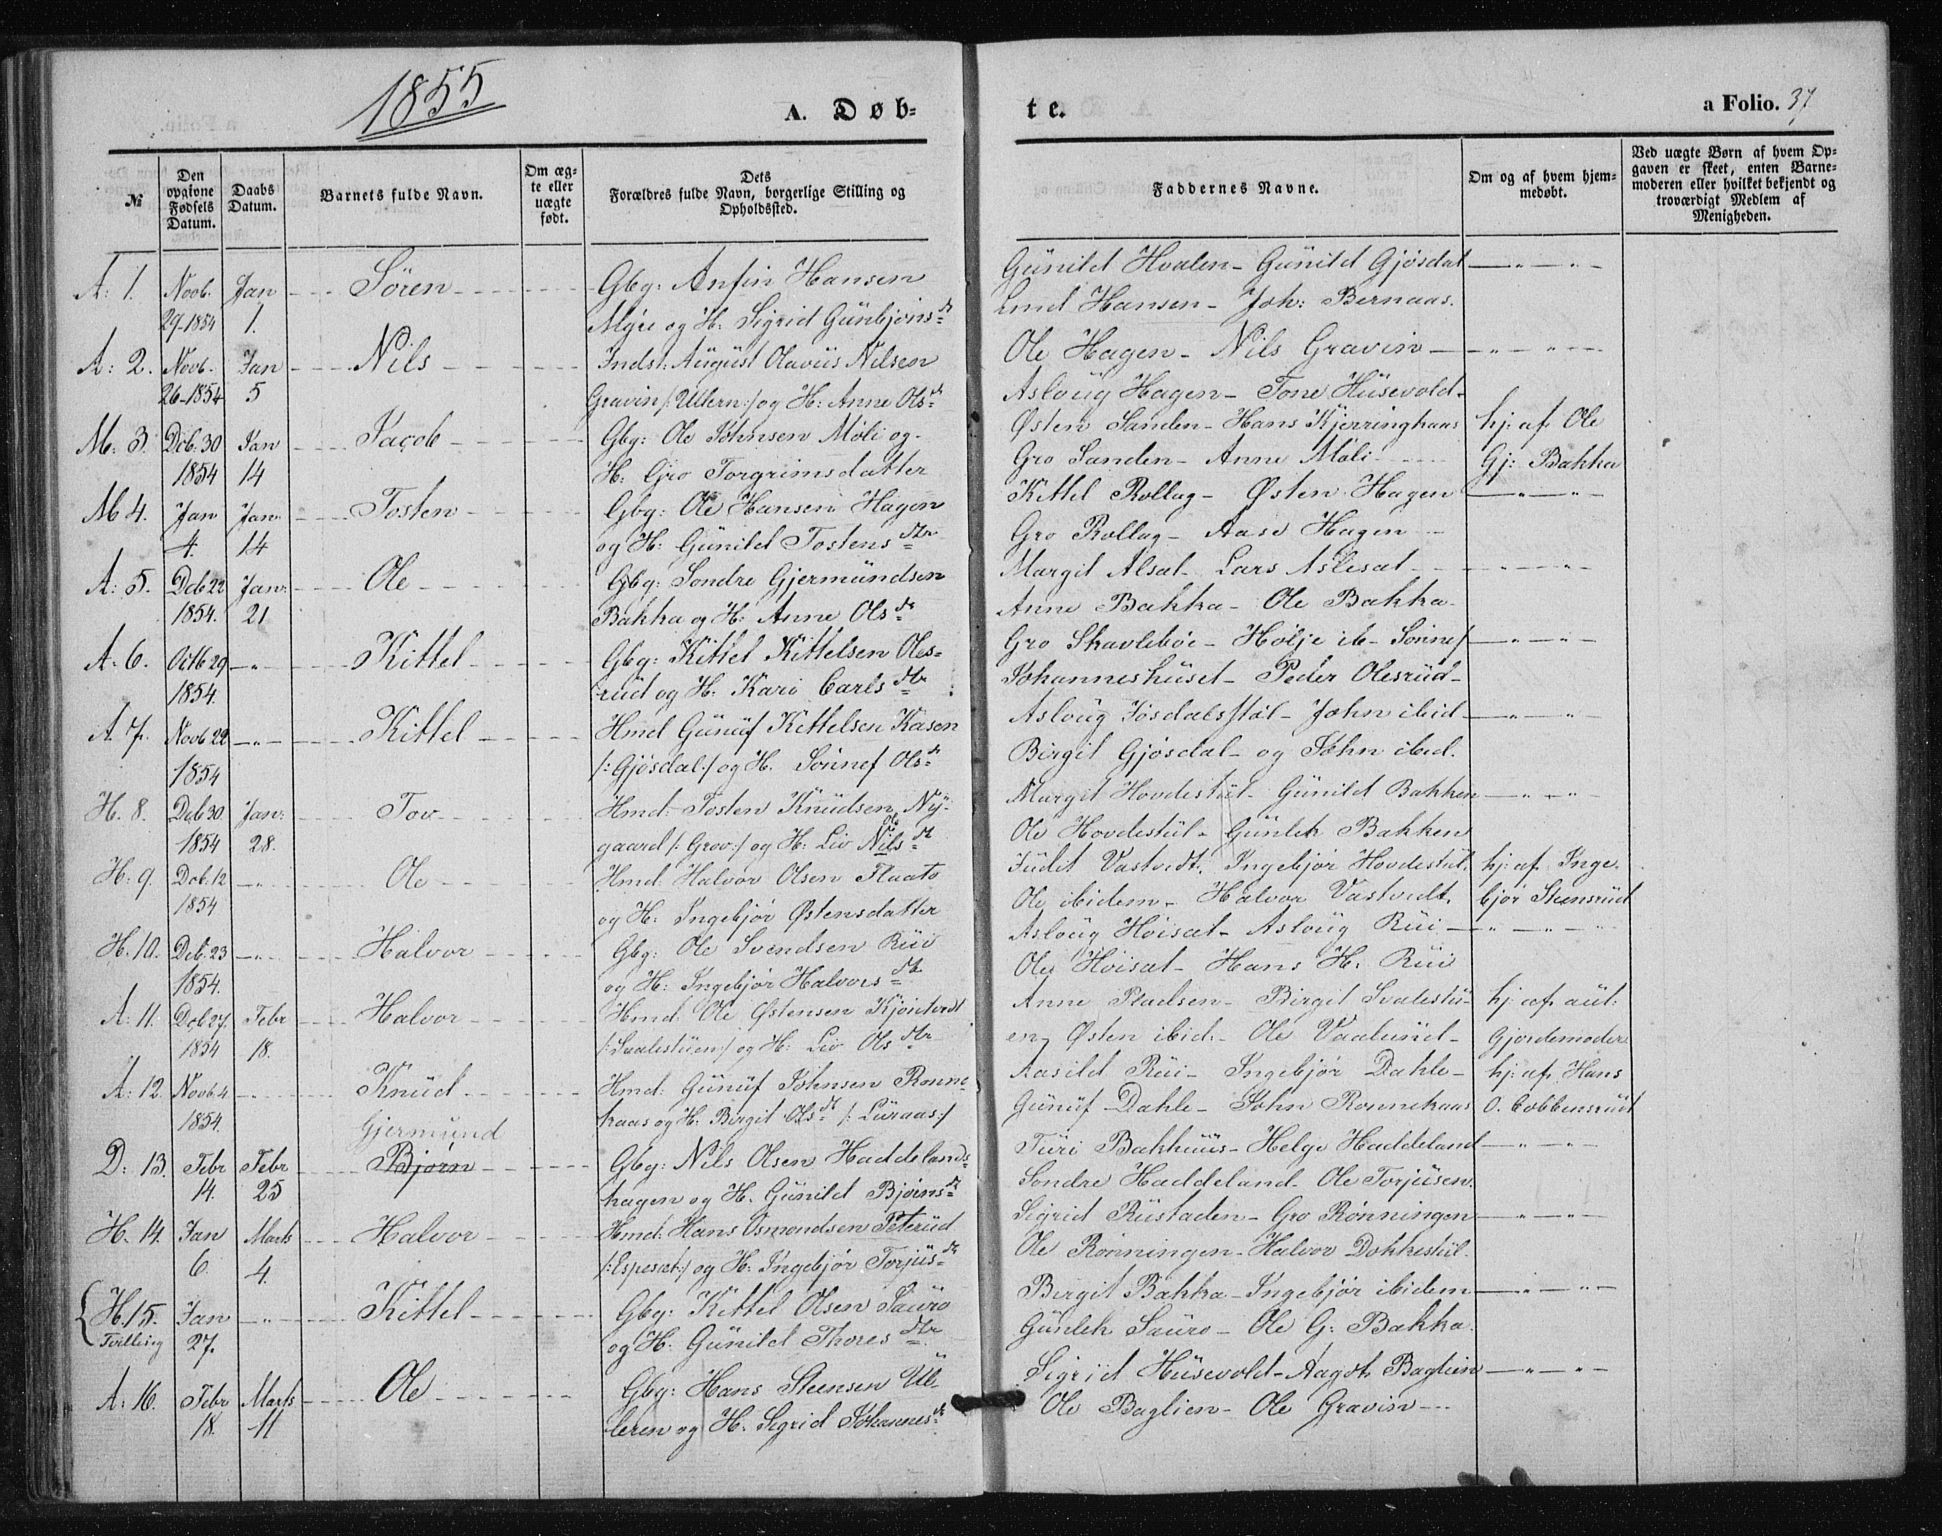 1855
A. Døb-
te.
a Folio. 37
№
Den opgivne Fødsels Datum.
Daabs Datum.
Barnets fulde Navn.
Om ægte eller uægte født.
Dets Forældres fulde Navn, borgerlige Stilling og Opholdssted.
Faddernes Navne.
Om og af hvem hjemmedøbt.
Ved uægte Børn af hvem Opgaven er skeet, enten Barnemoderen eller hvilket bekjendt og troværdigt Medlem af Menigheden.
A: 1. Novb. Jan Søren Gbg: Anfin Hansen Gunild Hvalen - Gunild Gjøsdal
29-1854 1. Myre og H. Sigrid Gunbjøns dr Hansen - Joh: Bernaas.
A: 2. Novb. Jan Nils Indst: August Olavus Nilsen Ole Hagen - Nils Gravin
26-1854 5 Gravin /: Ullern :/ og H: Anne Ols dr Asloug Hagen - Tone Husevold.
M: 3. Deb: 30 Jan Jacob Gbg: Ole Johnsen Moli og Østen Sanden - Hans Kjerringhaas hj: af Ole
1854 14 H: Gro Torgrimsdatter Gro Sanden - Anne Moli Gj: Bakka
M 4. Jan Jan Tosten Gbg: Ole Hansen Hagen Kittel Rollag - Østen Hagen
4. 14 og H: Gunild Tostens dtr Gro Rollag - Aase Hagen
A: 5. Deb 22 Jan: Ole Gbg: Sondre Gjermundsen Margit Alsat - Lars Aslesat
1854. 21 Bakka og H: Anne Ols dr Anne Bakka - Ole Bakka
A. 6. Octb 29 Kittel Gbg: Kittel Kittelsen Oles- Gro Skavlebøe - Hølje ib - Sønnef
1854. rud og H. Kari Carls dtr Johanneshuset - Peder Olesrud
A. 7. Novb 22 Kittel Hmd Gunuf Kittelsen Kasen Asloug Josdalsstøl - John ibid
1854 /: Gjøsdal :/ og H. Sønnef Ols dr Birgit Gjøsdal - og John ibid.
H. 8. Deb 30. Jan: Tov Hmd: Tosten Knudsen Ny- Margit Hovdestul - Gunild Bakken
1854 28. gaard /: Grov :/ og H: Liv Nils dr Ole Hovdestul - Gunlek Bakken
H: 9. Deb. 12 Ole Hmd: Halvor Olsen Flaato Judit Vastvedt. Ingebjør Hovdestul. hj: af Inge-
1854 og H: Ingebjør Østensdatter Ole ibidem - Halvor Vastvedt. bjør Steensrud
H. 10. Deb: 23 Halvor Gbg: Ole Svendsen Rui Asloug Høisat - Asloug Rui
1854. og H: Ingebjør Halvors dtr Ole Høisat - Hans H. Rui
A: 11. Deb 27. Febr Halvor Hmd: Ole Østensen Anne - Birgit Svalestu- hj: af aut:
1854 18. /: Svalestuen :/ og H: Liv Ols dtr en, Østen ibid: - Ole Vaalund Gjordemoder
A: 12. Novb. 4 Knud Hmd: Gunuf Johnsen Ronne- Aasild Rui - Ingebjør Dahle - hj: af Hans
1854. haas og H: Birgit Ols dr /: Luraas :/ Gunuf Dahle - John Ronnehaas O. Cobbensrud
Gjermund
D: 13. Febr Febr Bjørn Gbg: Nils Olsen Haddelands- Turi Bakhuus - Helge Haddeland
14. 25 hagen og H. Gunild Bjørns dr Sondre Haddeland - Ole Torjusen.
H. 14. Jan Marts Halvor Hmd: Hans Osmondsen Peterud Sigrid Rustaden - Gro Rønningen
6. 4. /: Espeset :/ og H: Ingebjør Torjus dr Ole Rønningen - Halvor Dokkestul.
H. 15. Jan Kittel Gbg: Kittel Olsen Sauro Birgit Bakka - Ingebjør ibidem
Tvilling 27. og H: Gunild Thores dtr Gunlek Sauro - Ole G: Bakka.
A: 16. Febr Marts Ole Gbg: Hans Steensen Ul- Sigrid Husevold - Aagot Baglien
18. 11 leren og H. Sigrid Johannes dr Ole Baglien - Ole Gravin